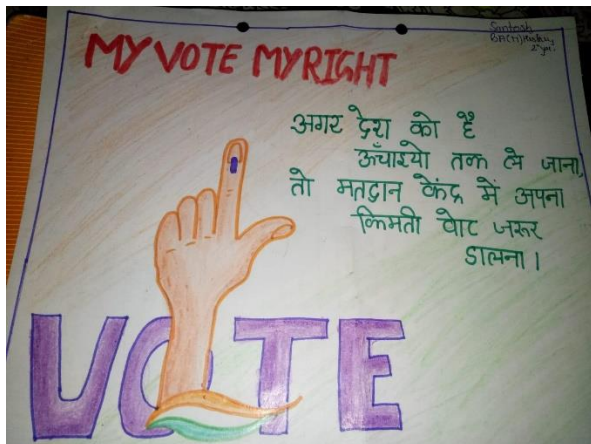 Santosh
BA(H) History
2nd year.
MY VOTE MY RIGHT
अगर देश को है
ऊँचाइयो तक ले जाना,
तो मतदान केंद्र में अपना
किमती वोट जरूर
डालना।
VOTE